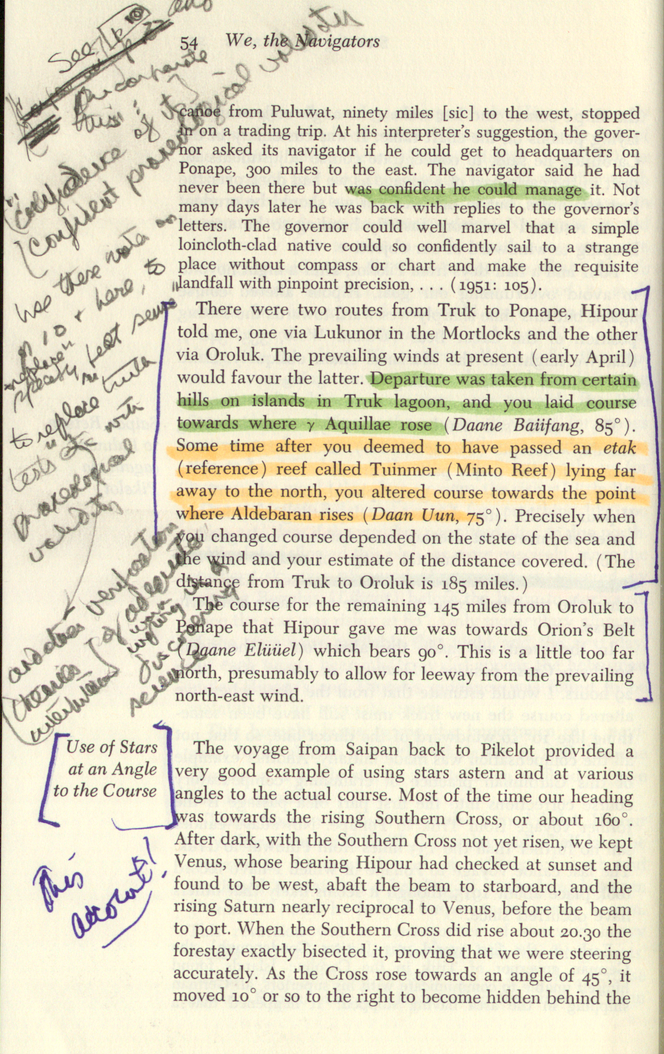 54 We, the Navigators
canoe from Puluwat, ninety miles [sic] to the west, stopped
in on a trading trip. At his interpreter's suggestion, the gover-
nor asked its navigator if he could get to headquarters on
Ponape, 300 miles to the east. The navigator said he had
never been there but was confident he could manage it. Not
many days later he was back with replies to the governor's
letters. The governor could well marvel that a simple
loincloth-clad native could so confidently sail to a strange
place without compass or chart and make the requisite
landfall with pinpoint precision, . . . (1951: 105).
There were two routes from Truk to Ponape, Hipour
told me, one via Lukunor in the Mortlocks and the other
via Oroluk. The prevailing winds at present (early April)
would favour the latter. Departure was taken from certain
hills on islands in Truk lagoon, and you laid course
towards where γ Aquillae rose (Daane Baiifang, 85°).
Some time after you deemed to have passed an etak
(reference) reef called Tuinmer (Minto Reef) lying far
away to the north, you altered course towards the point
where Aldebaran rises (Daan Uun, 75°). Precisely when
you changed course depended on the state of the sea and
the wind and your estimate of the distance covered. (The
distance from Truk to Oroluk is 185 miles.)
The course for the remaining 145 miles from Oroluk to
Ponape that Hipour gave me was towards Orion's Belt
(Daane Elüüel) which bears 90°. This is a little too far
north, presumably to allow for leeway from the prevailing
north-east wind.
Use of Stars
at an Angle
to the Course
The voyage from Saipan back to Pikelot provided a
very good example of using stars astern and at various
angles to the actual course. Most of the time our heading
was towards the rising Southern Cross, or about 160°.
After dark, with the Southern Cross not yet risen, we kept
Venus, whose bearing Hipour had checked at sunset and
found to be west, abaft the beam to starboard, and the
rising Saturn nearly reciprocal to Venus, before the beam
to port. When the Southern Cross did rise about 20.30 the
forestay exactly bisected it, proving that we were steering
accurately. As the Cross rose towards an angle of 45°, it
moved 10° or so to the right to become hidden behind the
See
this
use these notes on
p 10 + here, to
to replace truth
tests with
praxeological
validity
another verification
science
this
account!